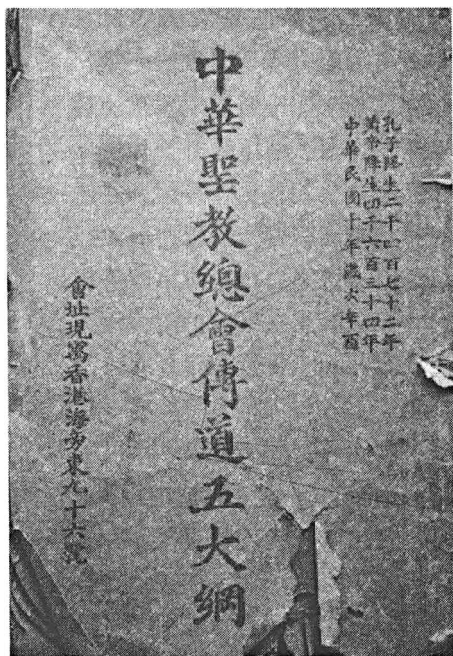 孔子降生二千四百七十二年
黃帝降生四千六百三十四年
中華民國十年歲次辛酉
中華聖教總會傳道五大綱
會址現寓香港海旁東九十六號